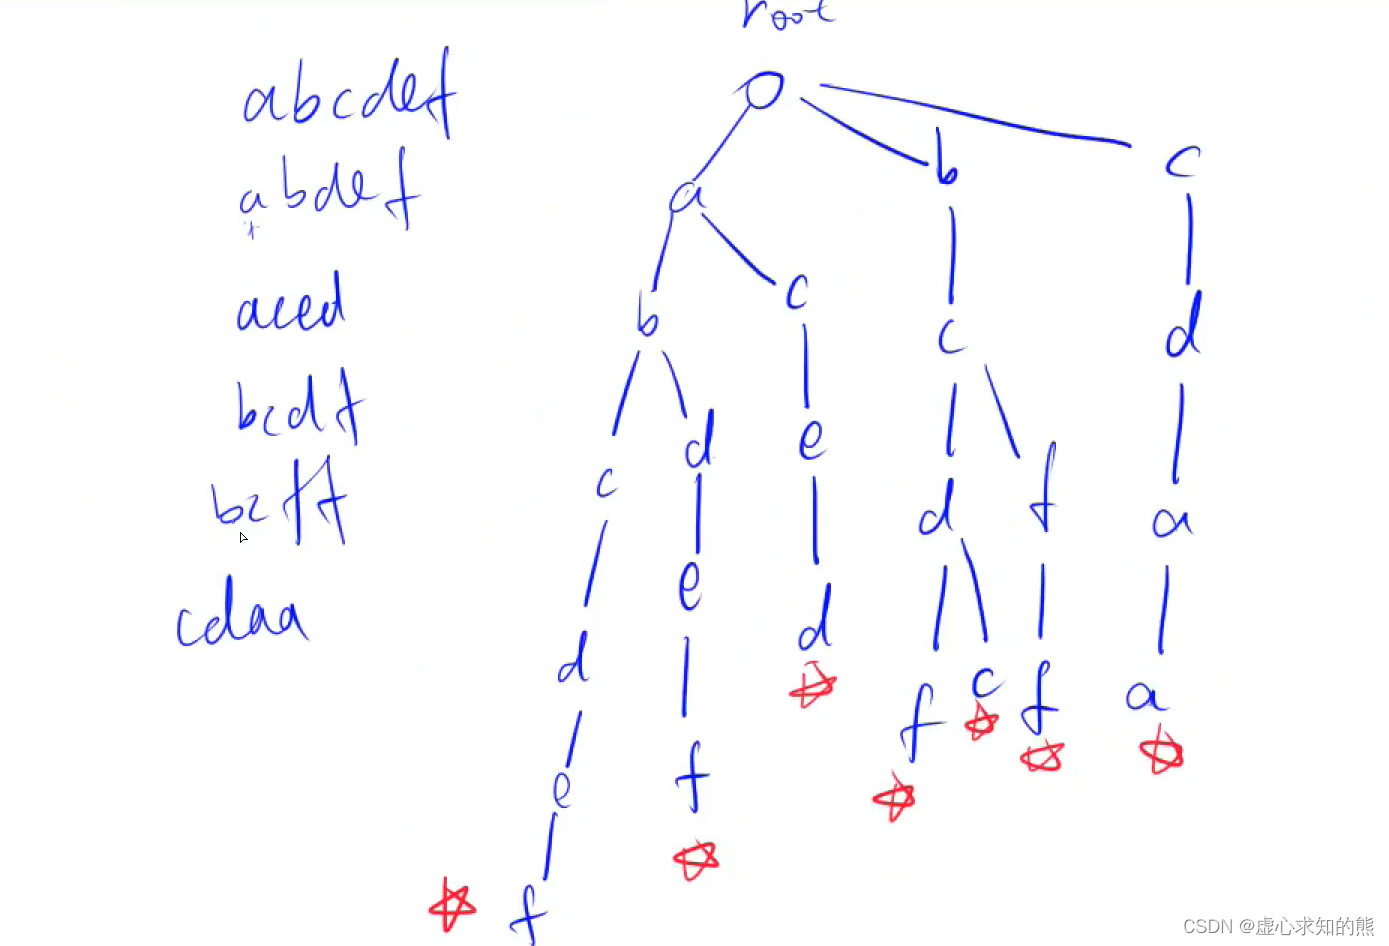 root
abcdef
abdef
aced
bcdf
bcff
cdaa
a
b
c
b
c
c
d
c
d
e
d
f
a
e
d
d
f
c
f
a
e
f
f
CSDN @虚心求知的熊